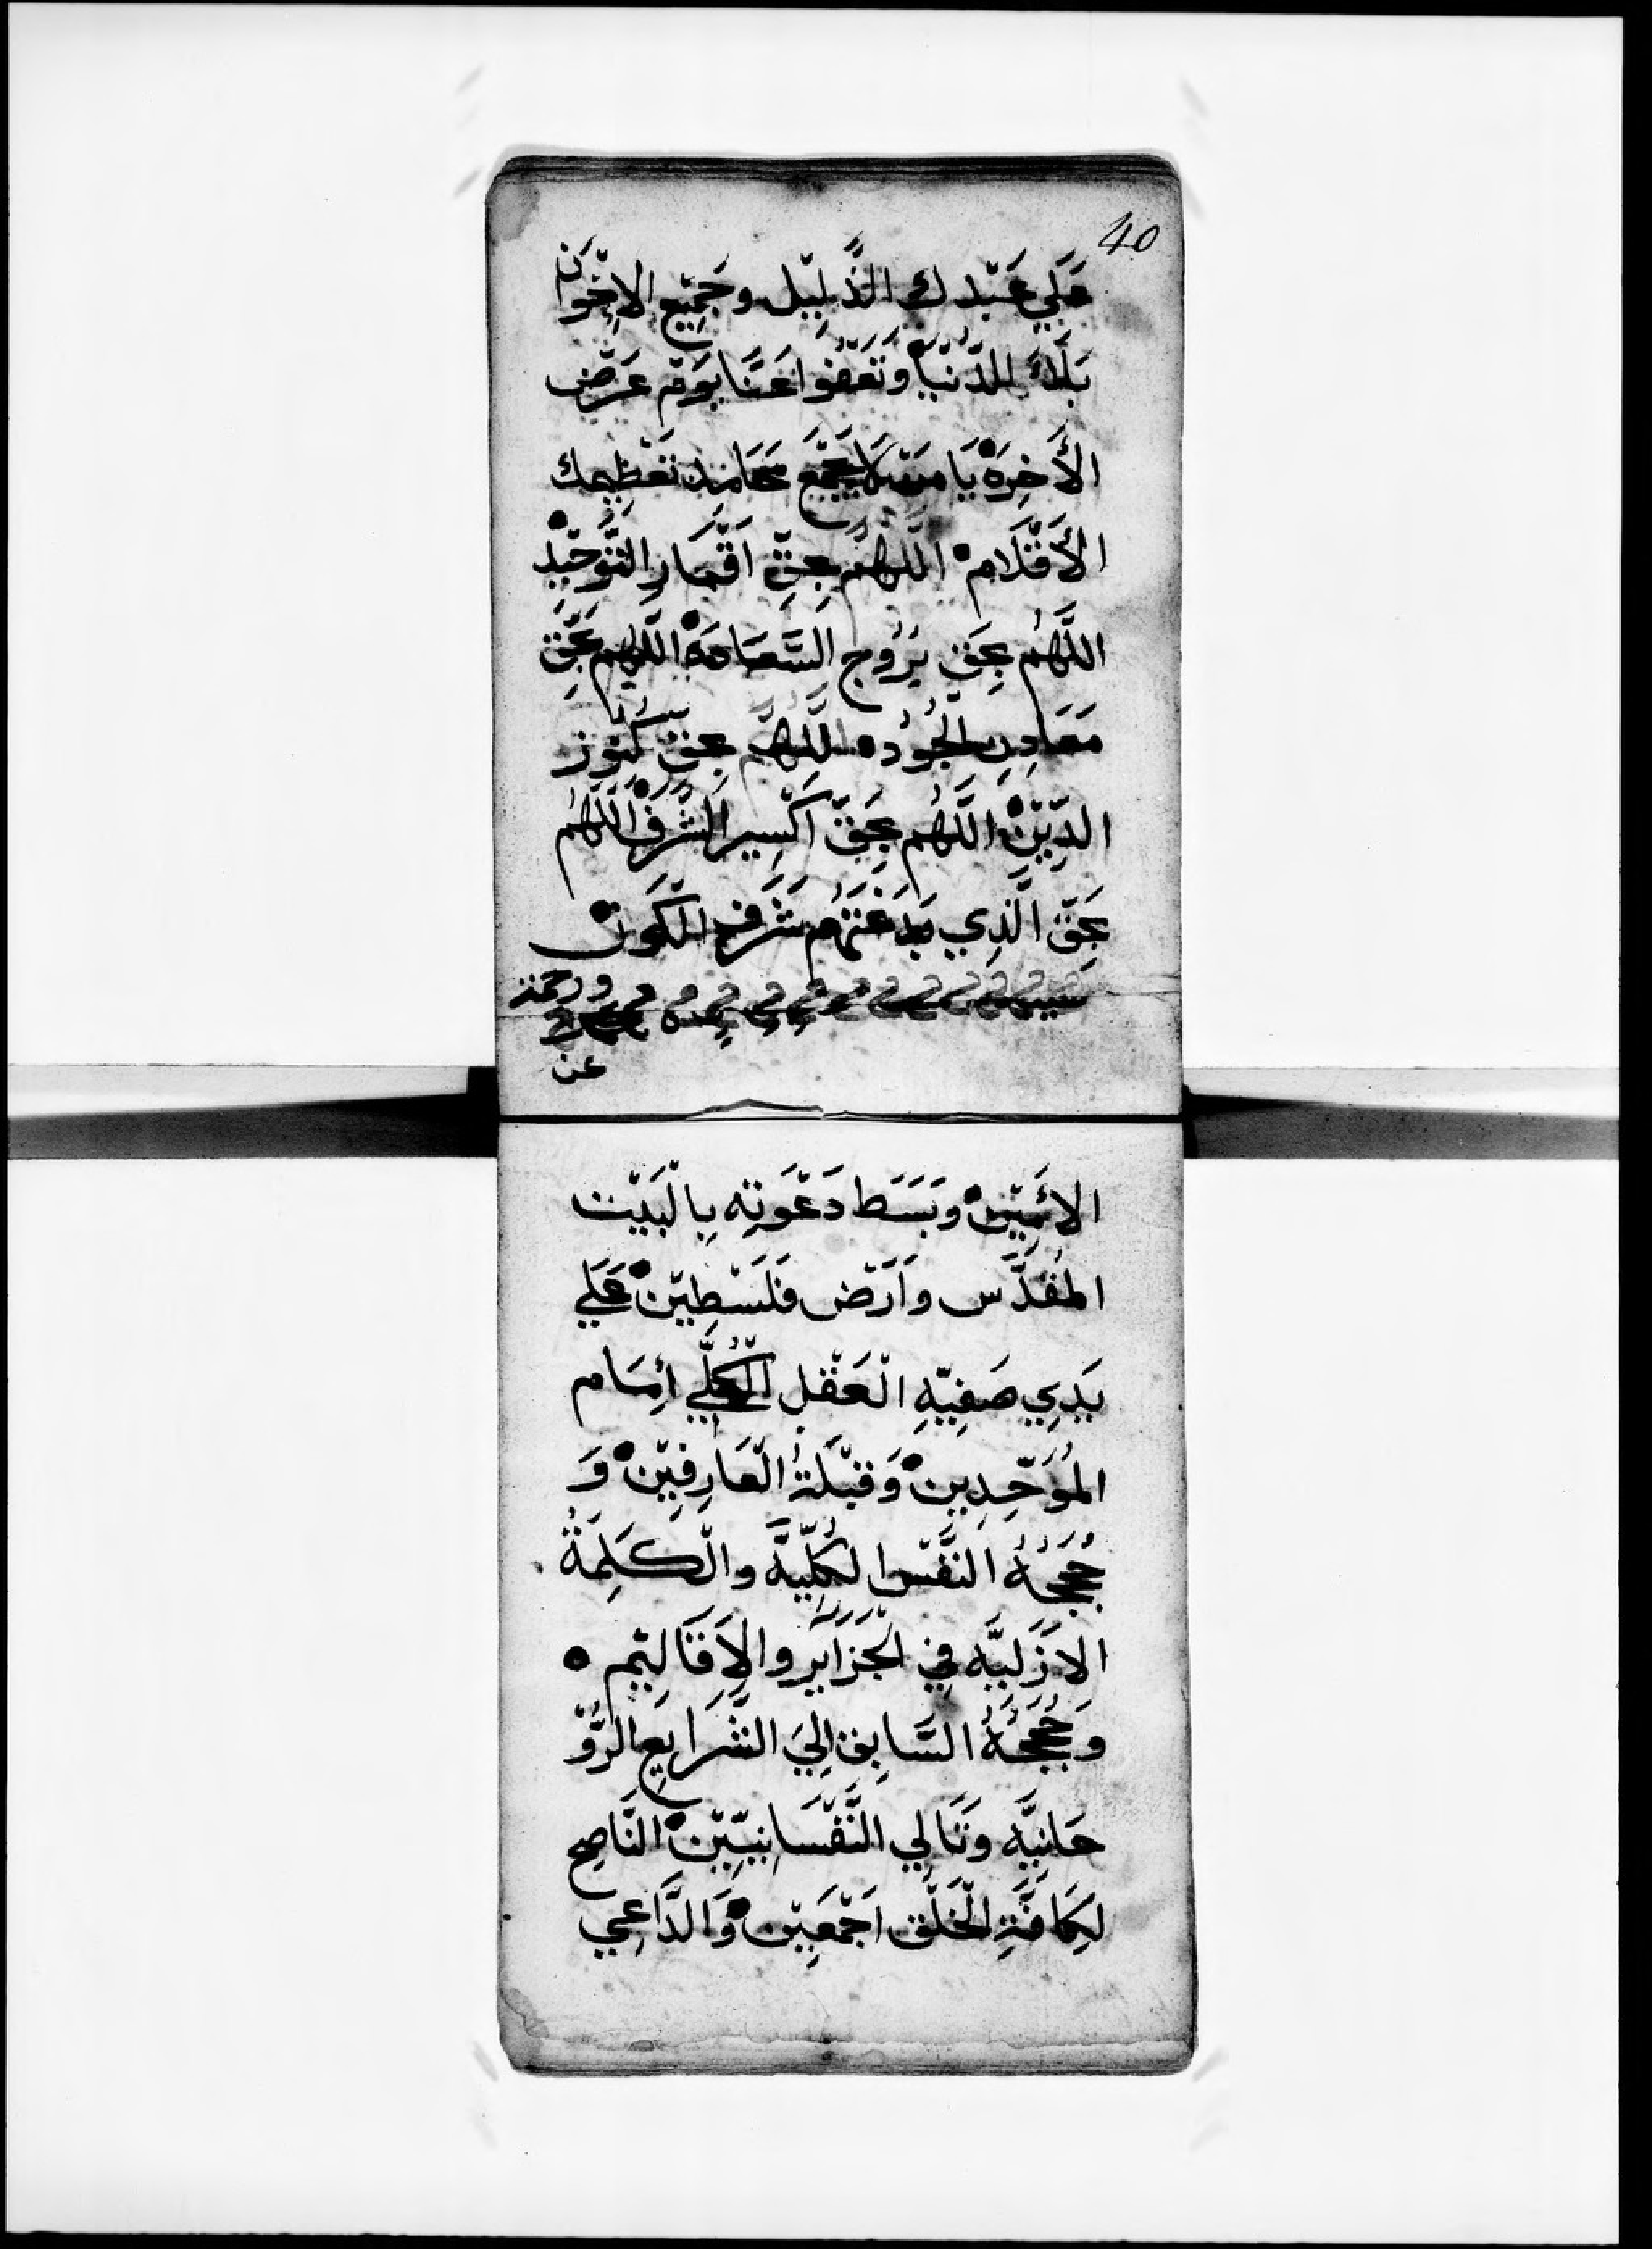 40
عَلَي عَبْدك الذَّلِيْل وجَمِيْع الاِخْوَان
بَلَاءَ الدُّنْيَا وتَعْفُوا عَنَّا يوَم عَرْض
الأَخِرَه يَا من لَا يَجْمَع مَحَامِد تَعْظِيمك
الأَقْلَام اللَّهُمَّ بِحَقِّ اَقْمَارِ التَّوحْيِدْ
اللَّهُم بِحَق بُرُوج السَّعَادَه اللَّهُم بِحَقِ
مَعَادِنِ الجُوُد اللَّهُمَّ بِحَق كُنُوز
الدِّيْن اللَّهُم بِحَقّ اَكْسِير الشَّرَف اللَّهُم
بِحَقّ الَّذِي شَرَف الْكَون
ورحمة
عن
الاَمِيْن وبَسَطَ دَعْوَتِه بِالْبَيْت
المُقدَّس واَرَض فَلَسْطِيْن عَلَي
يَدِي صَفِيّهِ الْعَقْل الْكُلِّي اِمَام
المُوُحِّدِين وَقبْلَةُ الْعَارِفِيْن وَ
حُجَّةُ النَّفْس الكُلِّيَّه والْكَلِمَةُ
الاَزَليَّه فِي الجَزَاير والاَقَاليْم ه
وَحُجَّةُ السَّابِق اِلَيَ الشَّرَايِعِ الرُّوْ
حَانِيَّه وتَالِي النَّفْسَانِيّيْن النَّاصِح
لِكَافَّةِ الْخَلْق اَجْمَعِيْن وَالدَّاعِي